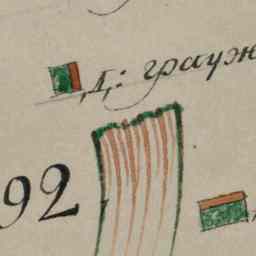 Д: грауж
92